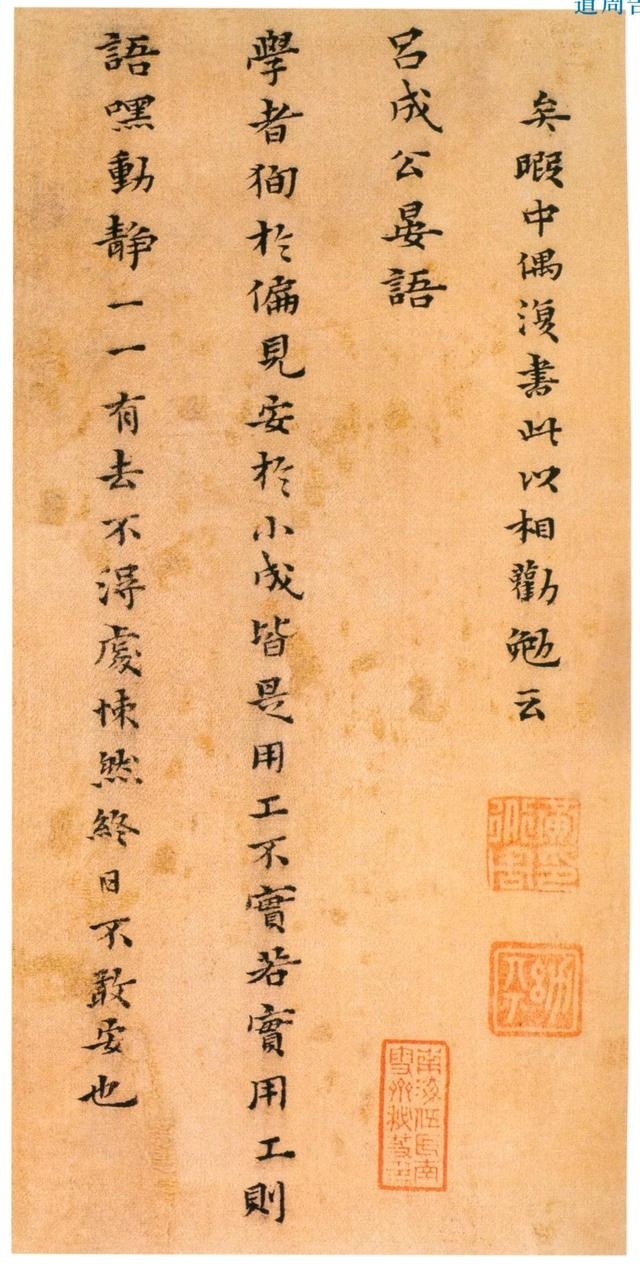 道周
矣暇中偶復書此以相勸勉云
呂成公晏語
學者狥於偏見安於小成皆是用工不實若實用工則
語嘿動靜一一有去不得處悚然終日不敢安也
南海伍氏南雪齋秘笈印